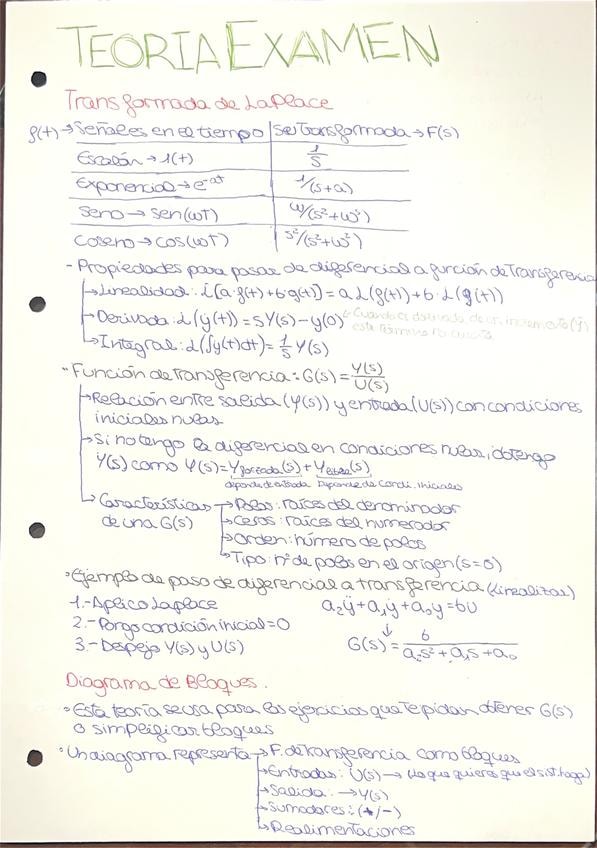 TEORIA EXAMEN
Transformada de Laplace
f(t) → Señales en el tiempo | Se Transformada → F(s)
Escalón → 1(t) | 1/S
Exponencial → e^-at | 1/(s+a)
Seno → Sen(ωT) | ω/(s²+ω²)
Coseno → cos(ωT) | s²/(s²+ω²)
- Propiedades para pasar de diferencial a función de Transferencia
→ Linealidad: L[a·f(t)+b·g(t)] = a L(f(t)) + b·L(g(t))
→ Derivada: L(y(t)) = sY(s) - y(0) Cuando es derivada de un incremento (ẏ)
este término no
→ Integral: L(∫y(t)dt) = 1/s Y(s)
· Función de transferencia: G(s) = Y(s)/U(s)
→ Relación entre salida (Y(s)) y entrada (U(s)) con condiciones
iniciales nulas
→ Si no tengo la diferencial en condiciones nulas, obtengo
Y(s) como Y(s) = Yforzada(s) + Ylibre(s)
depende de entrada Depende de condi. iniciales
→ Características → Polos: raíces del denominador
de una G(s) → Ceros: raíces del numerador
→ Orden: número de polos
→ Tipo: nº de polos en el origen (s=0)
· Ejemplo de paso de diferencial a transferencia (Linealizar)
1.- Aplico Laplace a₂ÿ + a₁ẏ + a₀y = bu
2.- Pongo condición inicial = 0
3.- Despejo Y(s) y U(s) G(s) = b/(a₂s² + a₁s + a₀)
Diagrama de Bloques.
· Esta teoría se usa para los ejercicios que te pidan obtener G(s)
o simplificar bloques
· Un diagrama representa → F. de transferencia como bloques
→ Entradas: U(s) → (Lo que quieres que el sist. haga)
→ Salida: → Y(s)
→ Sumadores: (+/-)
→ Realimentaciones